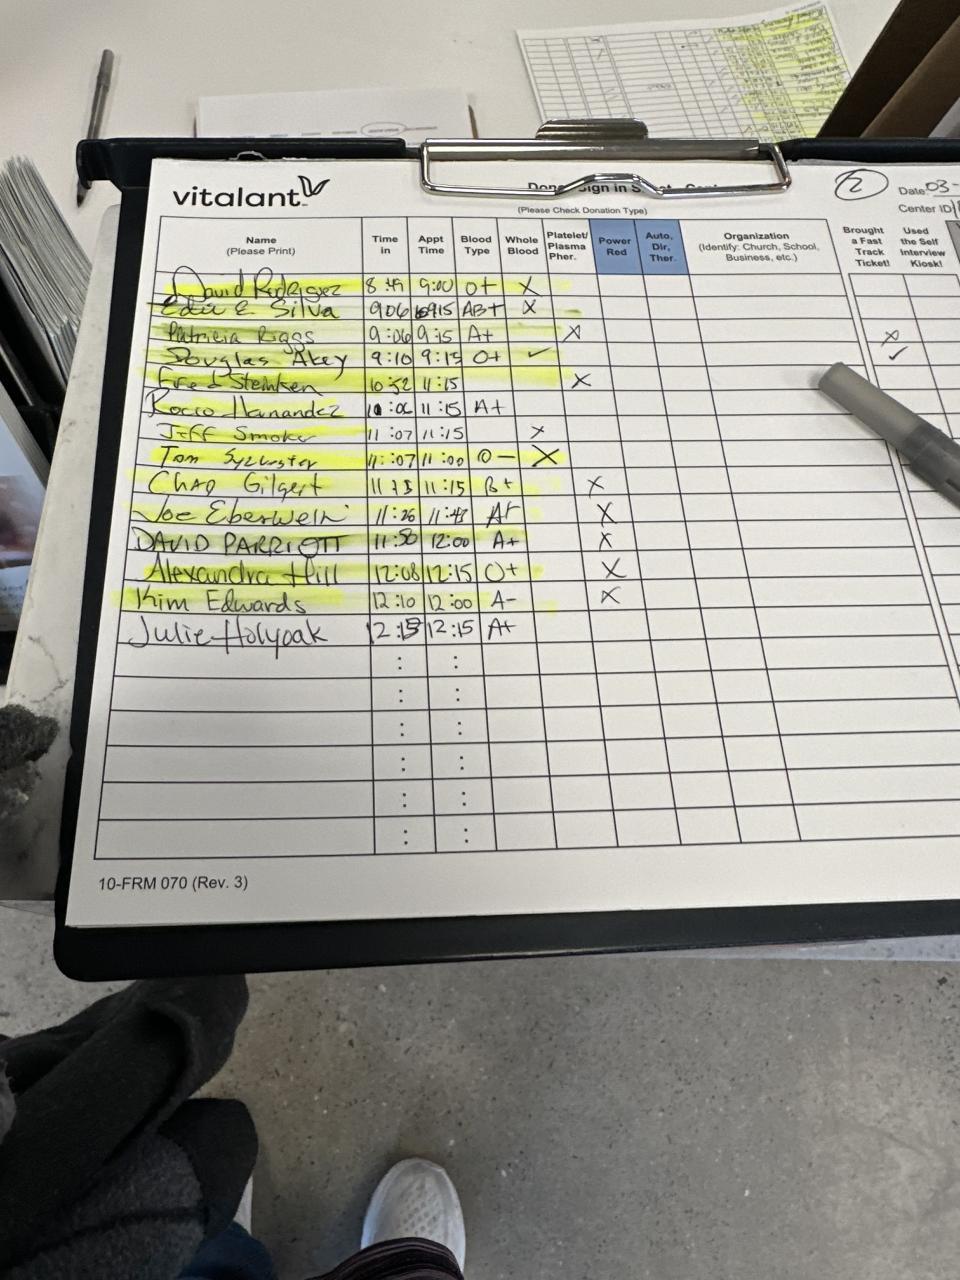 vitalant
(Please Check Donation Type)
2
Date 03-
Center ID
Name (Please Print) Time in Appt Time Blood Type Whole Blood Platelet/ Plasma Pher. Power Red Auto, Dir, Ther. Organization (Identify: Church, School, Business, etc.) Brought a Fast Track Ticket! Used the Self Interview Kiosk!
David Rodriguez 8:49 9:00 O+ X
E. Silva 906 915 AB+ X
Patricia Riggs 9:06 9:15 A+ X X
Douglas Akey 9:10 9:15 O+ ✓ ✓
Fred Stemken 10:52 11:15 X
Rocco Hernandez 11:15 A+
Jeff Smoker 11:07 11:15 X
Tom Sylvester 11:07 11:00 O- X
Chad Gilgert 11:15 B+ X
Joe Eberwein 11:26 A+ X
DAVID PARRIOTT 11:50 12:00 A+ X
Alexandra Hill 12:08 12:15 O+ X
Kim Edwards 12:10 12:00 A- X
Julie Holyoak 12:15 A+
10-FRM 070 (Rev. 3)